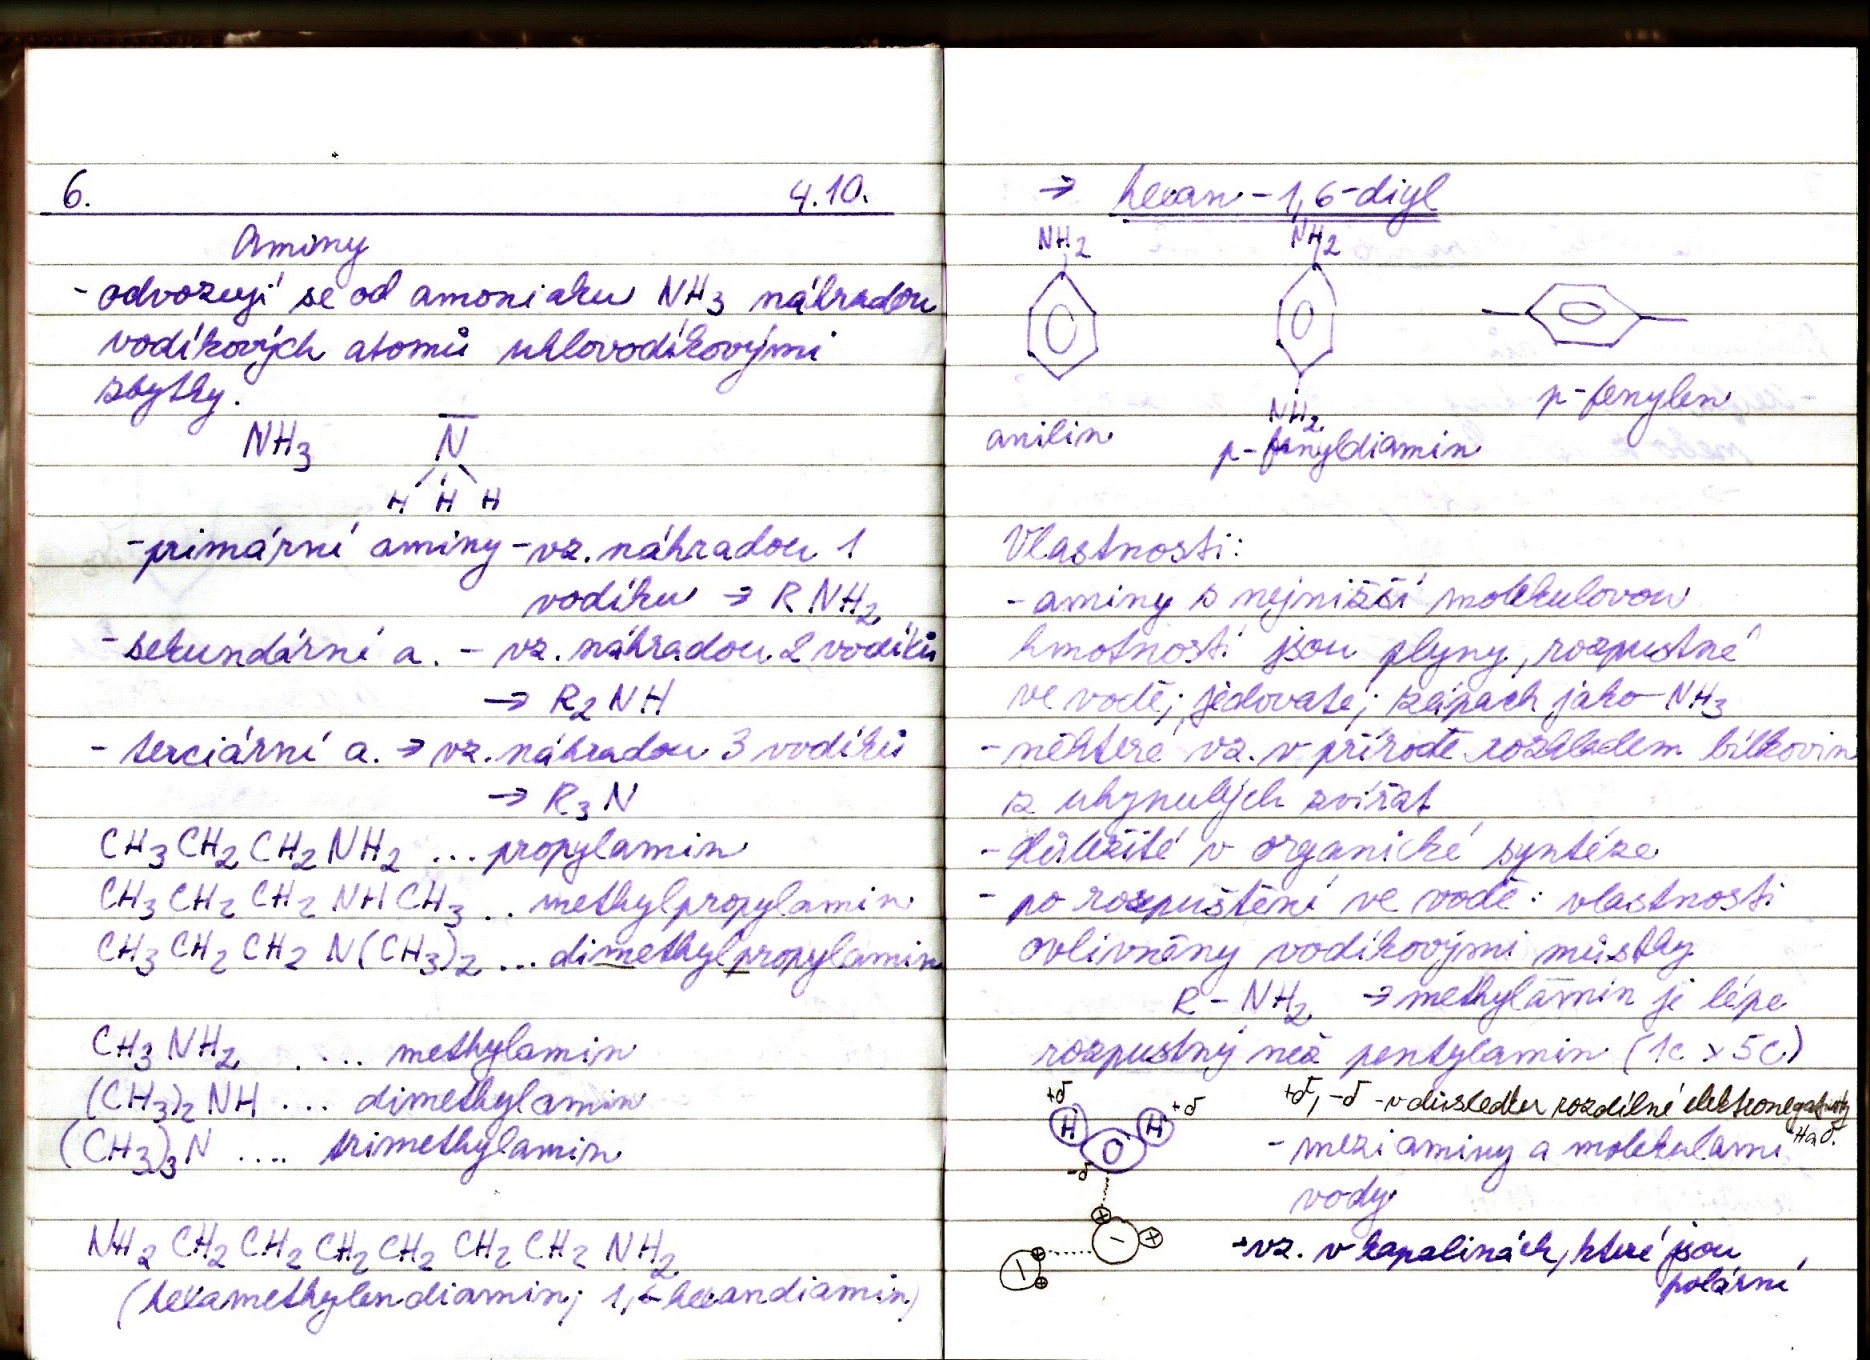 6. 4.10.
Aminy
- odvozují se od amoniaku NH3 náhradou
vodíkových atomů uhlovodíkovými
zbytky.
NH3 N
H H H
- primární aminy - vz. náhradou 1
vodíku → RNH2
- sekundární a. - vz. náhradou 2 vodíků
→ R2NH
- terciární a. → vz. náhradou 3 vodíků
→ R3N
CH3CH2CH2NH2 ... propylamin
CH3CH2CH2NHCH3 .. methylpropylamin
CH3CH2CH2N(CH3)2 ... dimethylpropylamin
CH3NH2 .... methylamin
(CH3)2NH ... dimethylamin
(CH3)3N .... trimethylamin
NH2CH2CH2CH2CH2CH2CH2NH2
(hexamethylendiamin; 1,6-hexandiamin)
→ hexan-1,6-diyl
NH2 NH2
NH2
p-fenylen
anilin p-fenyldiamin
Vlastnosti:
- aminy s nejnižší molekulovou
hmotností jsou plyny, rozpustné
ve vodě; jedovaté; zápach jako NH3
- některé vz. v přírodě rozkladem bílkovin
z uhynulých zvířat
- důležité v organické syntéze
- po rozpuštění ve vodě: vlastnosti
ovlivněny vodíkovými můstky
R-NH2 → methylamin je lépe
rozpustný než pentylamin (1C x 5C)
+δ +δ +δ, -δ - v důsledku rozdílné elektronegativity
H H H a O.
O - mezi aminy a molekulami
-δ
vody
+ - + - vz. v kapalinách, které jsou
- + + polární